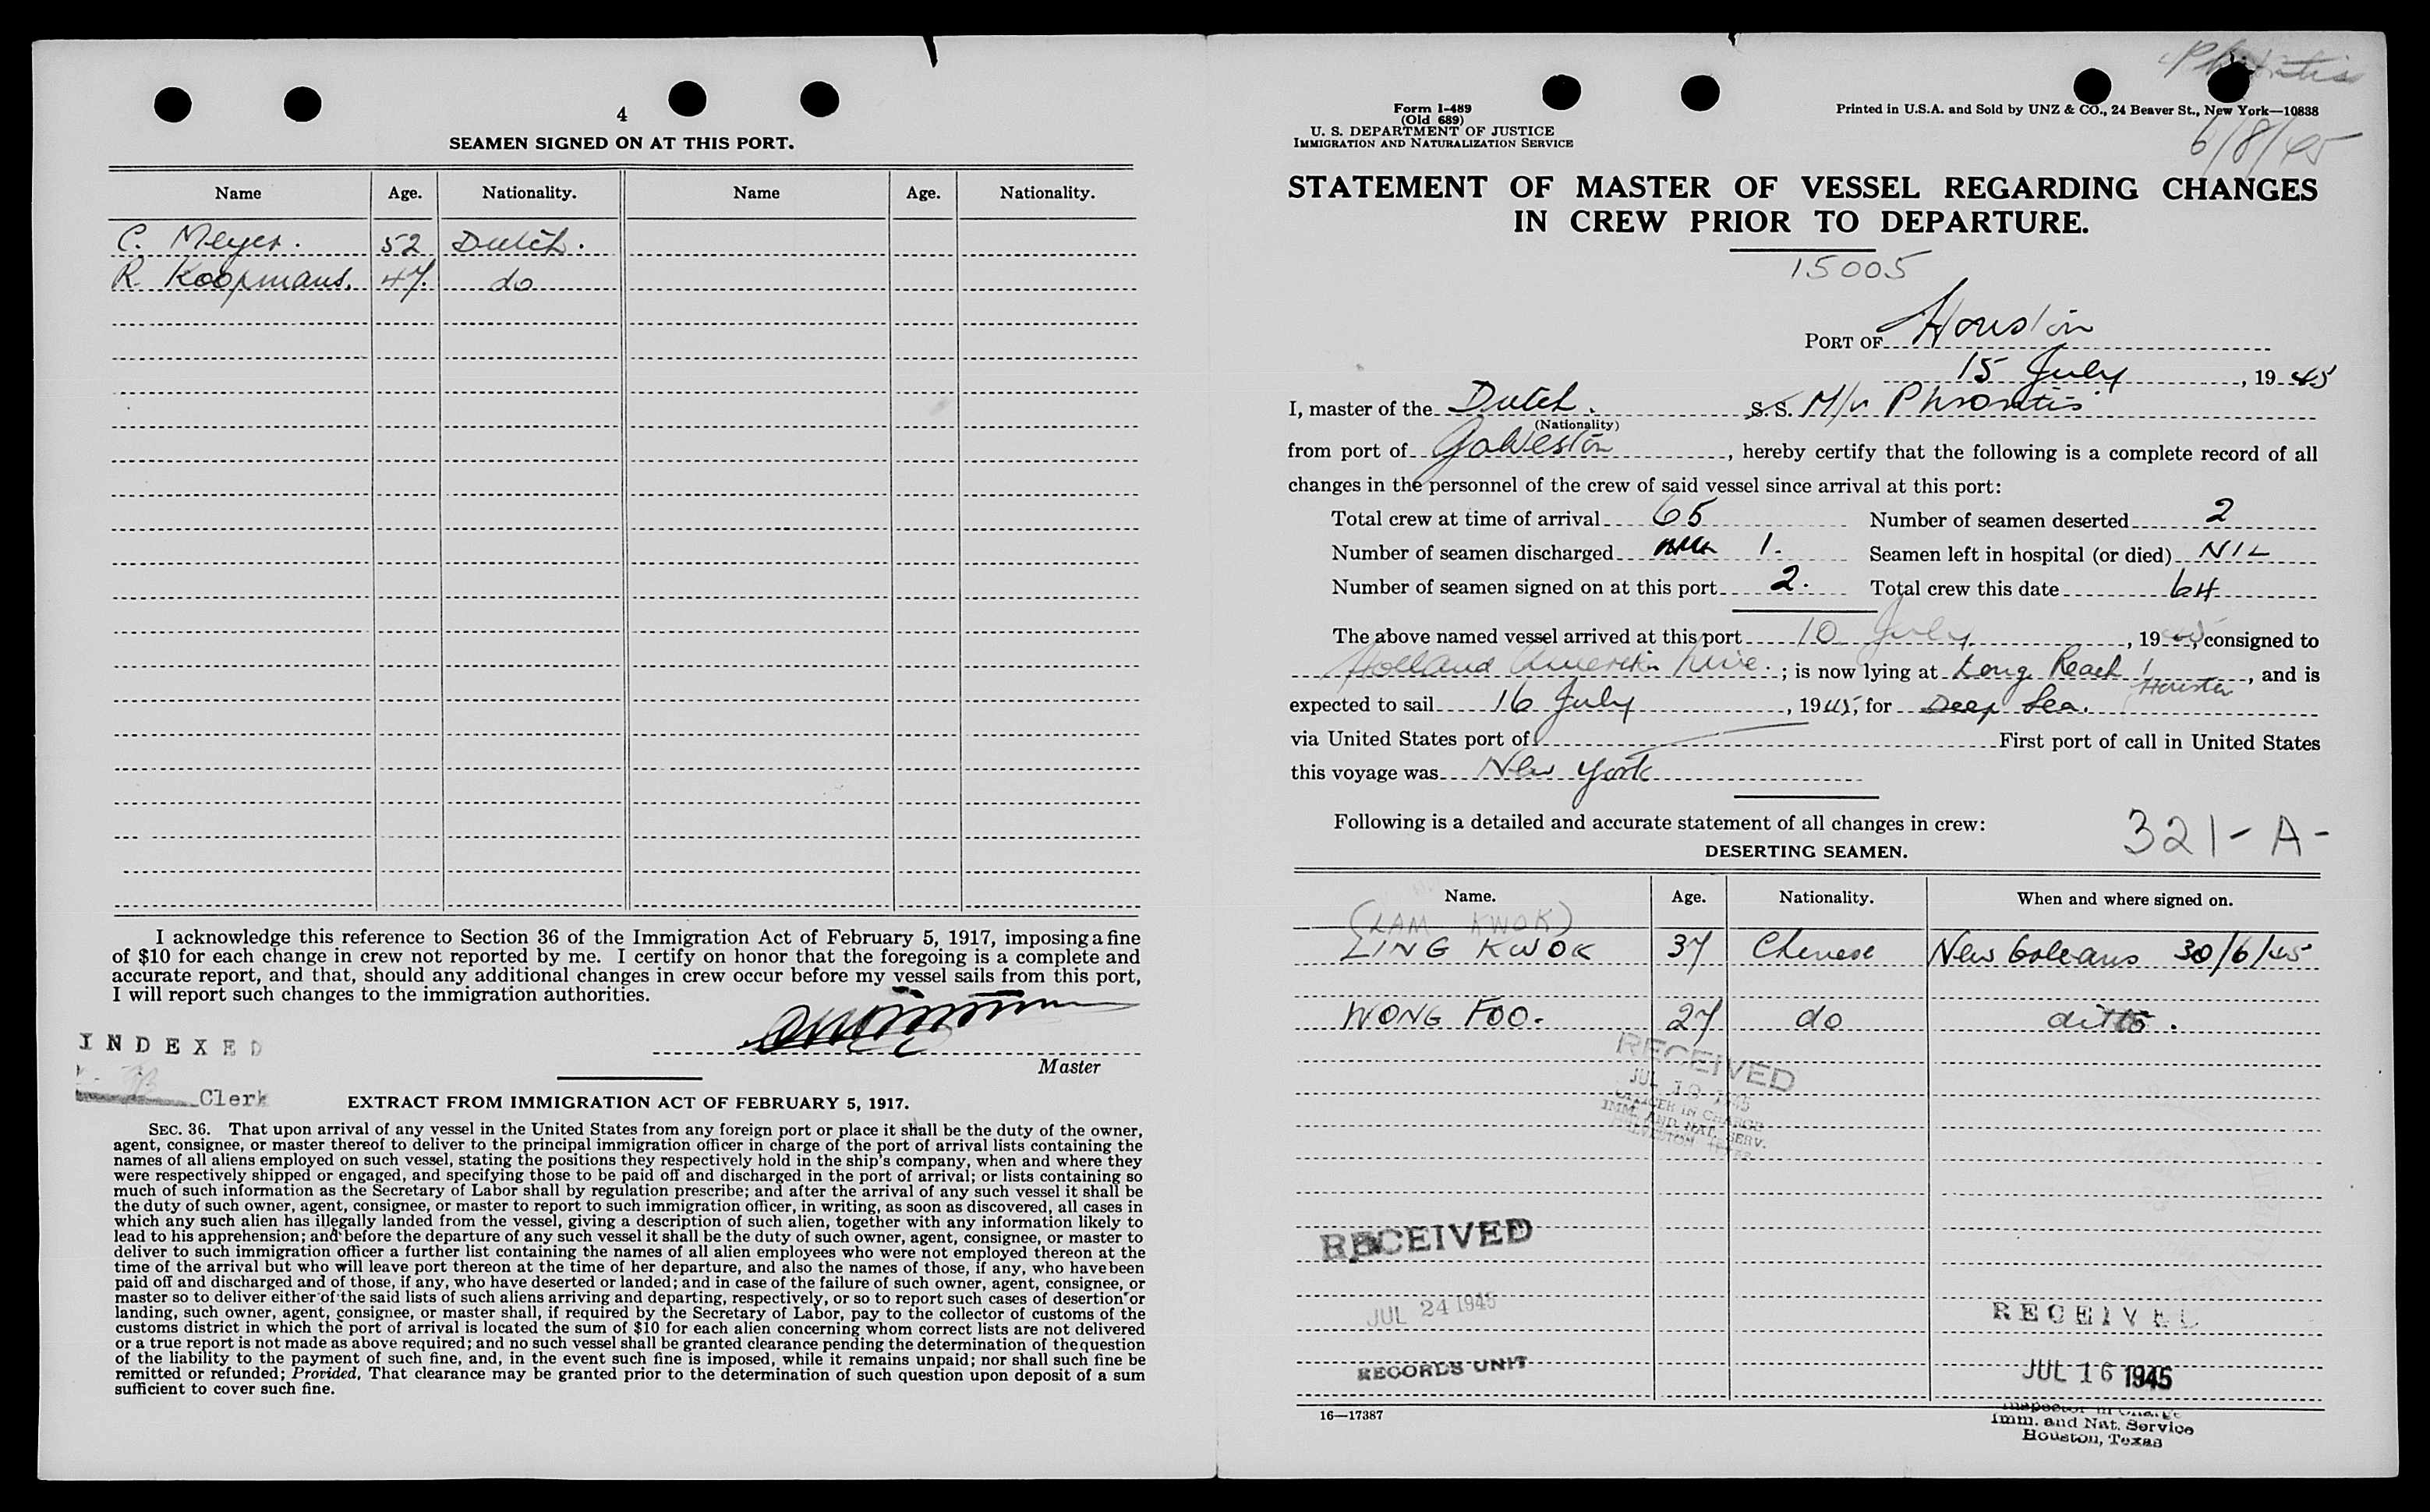 4
SEAMEN SIGNED ON AT THIS PORT.
Name Age. Nationality. Name Age. Nationality.
C. Meyer. 52 Dutch.
R. Koopmans. 47. do
I acknowledge this reference to Section 36 of the Immigration Act of February 5, 1917, imposing a fine
of $10 for each change in crew not reported by me. I certify on honor that the foregoing is a complete and
accurate report, and that, should any additional changes in crew occur before my vessel sails from this port,
I will report such changes to the immigration authorities.
INDEXED
Master
Clerk
EXTRACT FROM IMMIGRATION ACT OF FEBRUARY 5, 1917.
SEC. 36. That upon arrival of any vessel in the United States from any foreign port or place it shall be the duty of the owner,
agent, consignee, or master thereof to deliver to the principal immigration officer in charge of the port of arrival lists containing the
names of all aliens employed on such vessel, stating the positions they respectively hold in the ship's company, when and where they
were respectively shipped or engaged, and specifying those to be paid off and discharged in the port of arrival; or lists containing so
much of such information as the Secretary of Labor shall by regulation prescribe; and after the arrival of any such vessel it shall be
the duty of such owner, agent, consignee, or master to report to such immigration officer, in writing, as soon as discovered, all cases in
which any such alien has illegally landed from the vessel, giving a description of such alien, together with any information likely to
lead to his apprehension; and before the departure of any such vessel it shall be the duty of such owner, agent, consignee, or master to
deliver to such immigration officer a further list containing the names of all alien employees who were not employed thereon at the
time of the arrival but who will leave port thereon at the time of her departure, and also the names of those, if any, who have been
paid off and discharged and of those, if any, who have deserted or landed; and in case of the failure of such owner, agent, consignee, or
master so to deliver either of the said lists of such aliens arriving and departing, respectively, or so to report such cases of desertion or
landing, such owner, agent, consignee, or master shall, if required by the Secretary of Labor, pay to the collector of customs of the
customs district in which the port of arrival is located the sum of $10 for each alien concerning whom correct lists are not delivered
or a true report is not made as above required; and no such vessel shall be granted clearance pending the determination of the question
of the liability to the payment of such fine, and, in the event such fine is imposed, while it remains unpaid; nor shall such fine be
remitted or refunded; Provided, That clearance may be granted prior to the determination of such question upon deposit of a sum
sufficient to cover such fine.
Phrontis
Form I-489
(Old 689)
U. S. DEPARTMENT OF JUSTICE
IMMIGRATION AND NATURALIZATION SERVICE
Printed in U.S.A. and Sold by UNZ & CO., 24 Beaver St., New York—10838
6/8/45
STATEMENT OF MASTER OF VESSEL REGARDING CHANGES
IN CREW PRIOR TO DEPARTURE.
15005
PORT OF Houston
15 July, 19 45
I, master of the Dutch. S.S. M/v Phrontis
(Nationality)
from port of Galveston, hereby certify that the following is a complete record of all
changes in the personnel of the crew of said vessel since arrival at this port:
Total crew at time of arrival 65 Number of seamen deserted 2
Number of seamen discharged 1. Seamen left in hospital (or died) NIL
Number of seamen signed on at this port 2. Total crew this date 64
The above named vessel arrived at this port 10 July, 1945, consigned to
Holland Amerika Line.; is now lying at Long Reach, Houston, and is
expected to sail 16 July, 1945, for Deep Sea.
via United States port of First port of call in United States
this voyage was New York
Following is a detailed and accurate statement of all changes in crew:
321-A-
DESERTING SEAMEN.
Name. Age. Nationality. When and where signed on.
(LAM KWOK)
LING KWOK 37 Chinese New Orleans 30/6/45
WONG FOO. 27 do ditto.
RECEIVED
JUL 18 1945
OFFICER IN CHARGE
IMM. AND NAT. SERV.
GALVESTON TEXAS
RECEIVED
JUL 24 1945
RECORDS UNIT
RECEIVED
JUL 16 1945
Inspector in Charge
Imm. and Nat. Service
Houston, Texas
16—17387